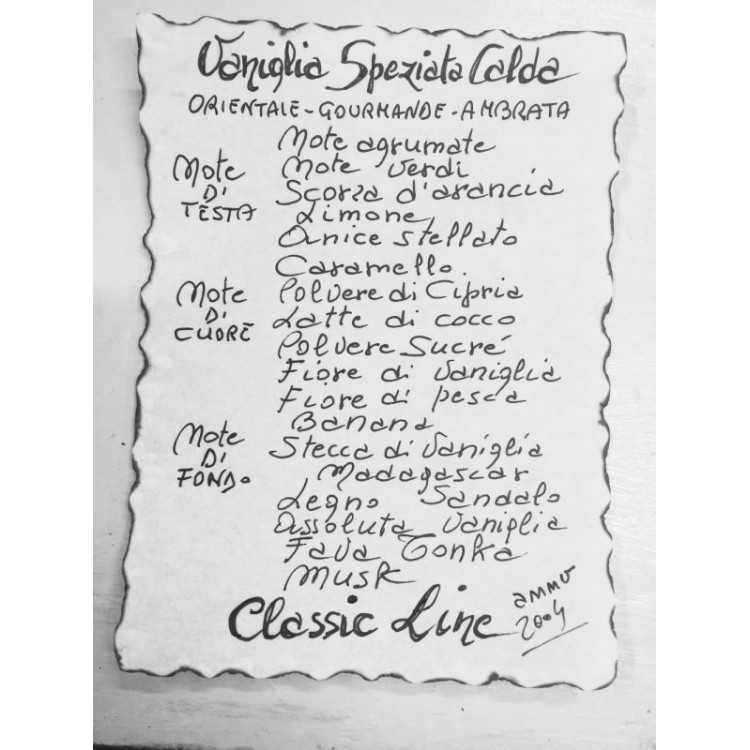 Vaniglia Speziata Calda
ORIENTALE - GOURMANDE - AMBRATA
Note agrumate
Note Verdi
Note
Di
TESTA
Scorza d'arancia
Limone
Anice stellato
Caramello.
Note
Di
CUORE
Polvere di Cipria
Latte di cocco
Polvere Sucré
Fiore di Vaniglia
Fiore di pesca
Banana
Note
Di
FONDO
Stecca di Vaniglia
Madagascar
Legno Sandalo
Assoluta Vaniglia
Fava Tonka
Musk
Classic Line
2004